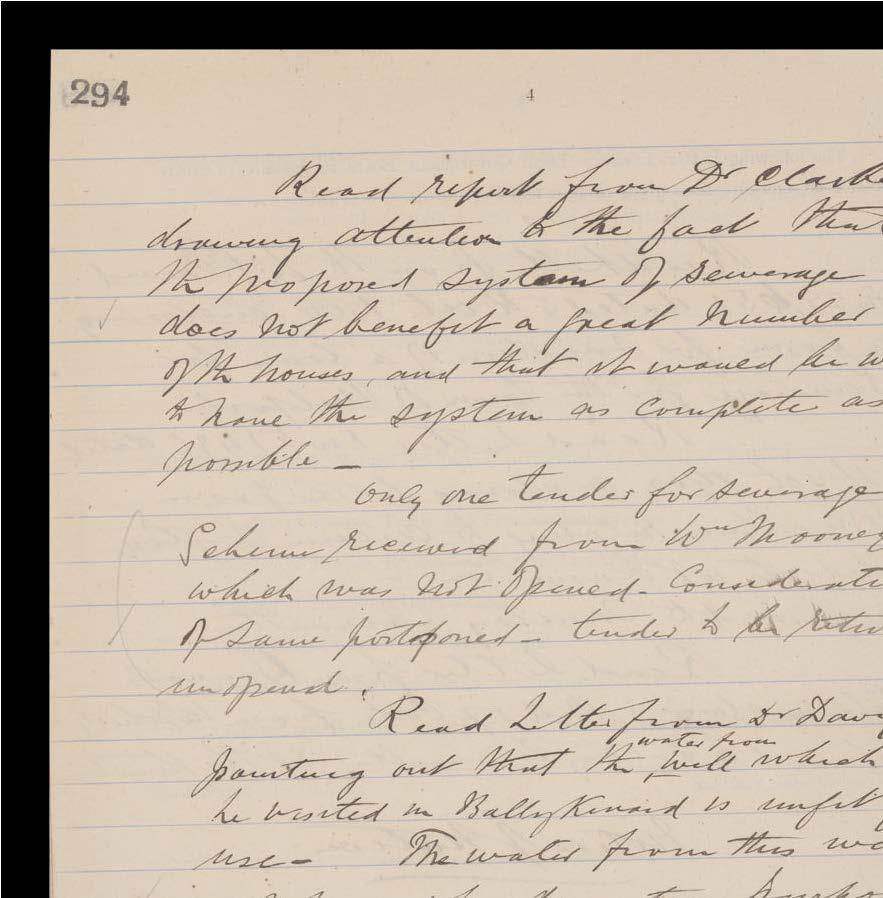 294
4
Read report from Dr Clarke
drawing attention to the fact that
the proposed system of sewerage
does not benefit a great number
of the houses, and that it would be w
to have the system as complete as
possible -
Only one tender for sewerage
Scheme received from Wm Mooney
which was not opened - Considerati
of same postponed - tender to be retu
unopened.
Read Letter from Dr Dav
pointing out that the water from well which
he visited in Ballykinard is unfit
use - The water from this we